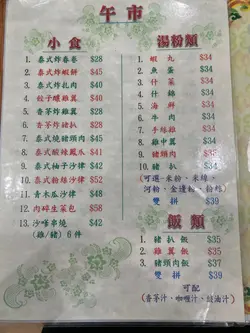 午市
小食
1. 泰式炸春卷 $28
2. 泰式炸蝦餅 $45
3. 泰式炸扎肉 $40
4. 骰子雞翼 $40
5. 香茅炸雞翼 $40
6. 香茅炸豬扒 $40
7. 泰式燒豬頸肉 $42
8. 泰式酸辣鳳爪 $42
9. 泰式柚子沙律 $42
10. 泰式粉絲沙律 $42
11. 青木瓜沙律 $42
12. 肉碎生菜包 $58
13. 沙嗲串燒 $52
(雞/豬) 6 件
湯粉類
1. 蝦丸 $34
2. 魚蛋 $34
3. 什菜 $34
4. 什錦 $34
5. 海鮮 $34
6. 牛肉 $34
7. 手絲雞 $34
8. 雞中翼 $34
9. 豬頸肉 $35
10. 豬扒 $34
(可選-米粉、米線、
河粉、金邊粉、粉絲)
雙拼 $39
飯類
1. 豬扒飯 $35
2. 雞翼飯 $35
3. 豬頸肉飯 $37
雙拼 $39
可配
(香茅汁、咖喱汁、豉油汁)